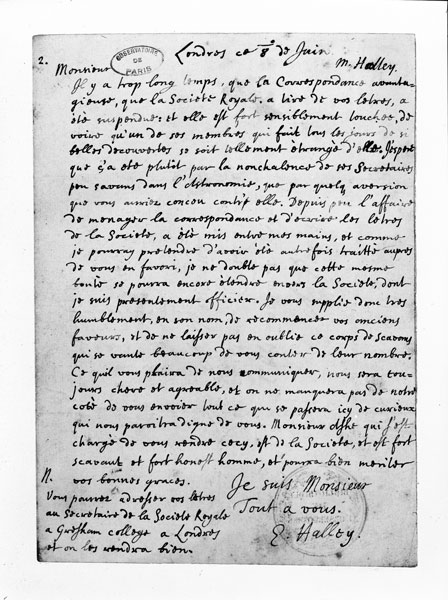 2.
OBSERVATOIRE DE PARIS
Londres ce 8 de Juin.
M. Halley.
Monsieur
Il y a trop long temps, que la Correspondance avanta-
gieuse, que la Societé Royale, a tiré de vos letres, a
été suspendue: et elle est fort sensiblement touchée, de
voire qu'un de ses membres qui fait tous les jours de si
belles decouvertes se soit tellement étrangé d'elle. J'espere
que ç'a eté plutit par la nonchalence de ses Secretaires
peu savans dans l'Astronomie, que par quelq aversion
que vous auriez concou contr'elle. Depuis peu l'affaire
de menager la correspondance et d'ecrire les letres
de la Societé, a eté mis entre mes mains, et comme
je pourray pretendre d'avoir été autrefois traitté aupres
de vous en favori, je ne double pas que cette mesme
bonté se pourra encore étendre envers la Societé, dont
je suis presentement officier. Je vous supplie donc tres
humblement, en son nom, de recommencer vos anciens
faveurs, et de ne laisser pas en oublie ce corps de scavans
qui se vante beaucoup de vous conter de leur nombre.
Ce quil vous plaira de nous communiquer, nous sera tou-
jours chere et agreable, et on ne manquera pas de notre
coté de vous envoier tout ce que se passera icy de curieux
qui nous paroitra digne de vous. Monsieur Ashe qui s'est
chargé de vous rendre cecy, est de la Societé, et est fort
scavant et fort honest homme, et pourra bien meriter
vos bonnes graces.
Je suis Monsieur
Tout a vous.
E. Halley.
N.
Vous pouvez adresser vos letres
au Secretaire de la Societe Royale
a Gresham college a Londres
et on les rendra bien.